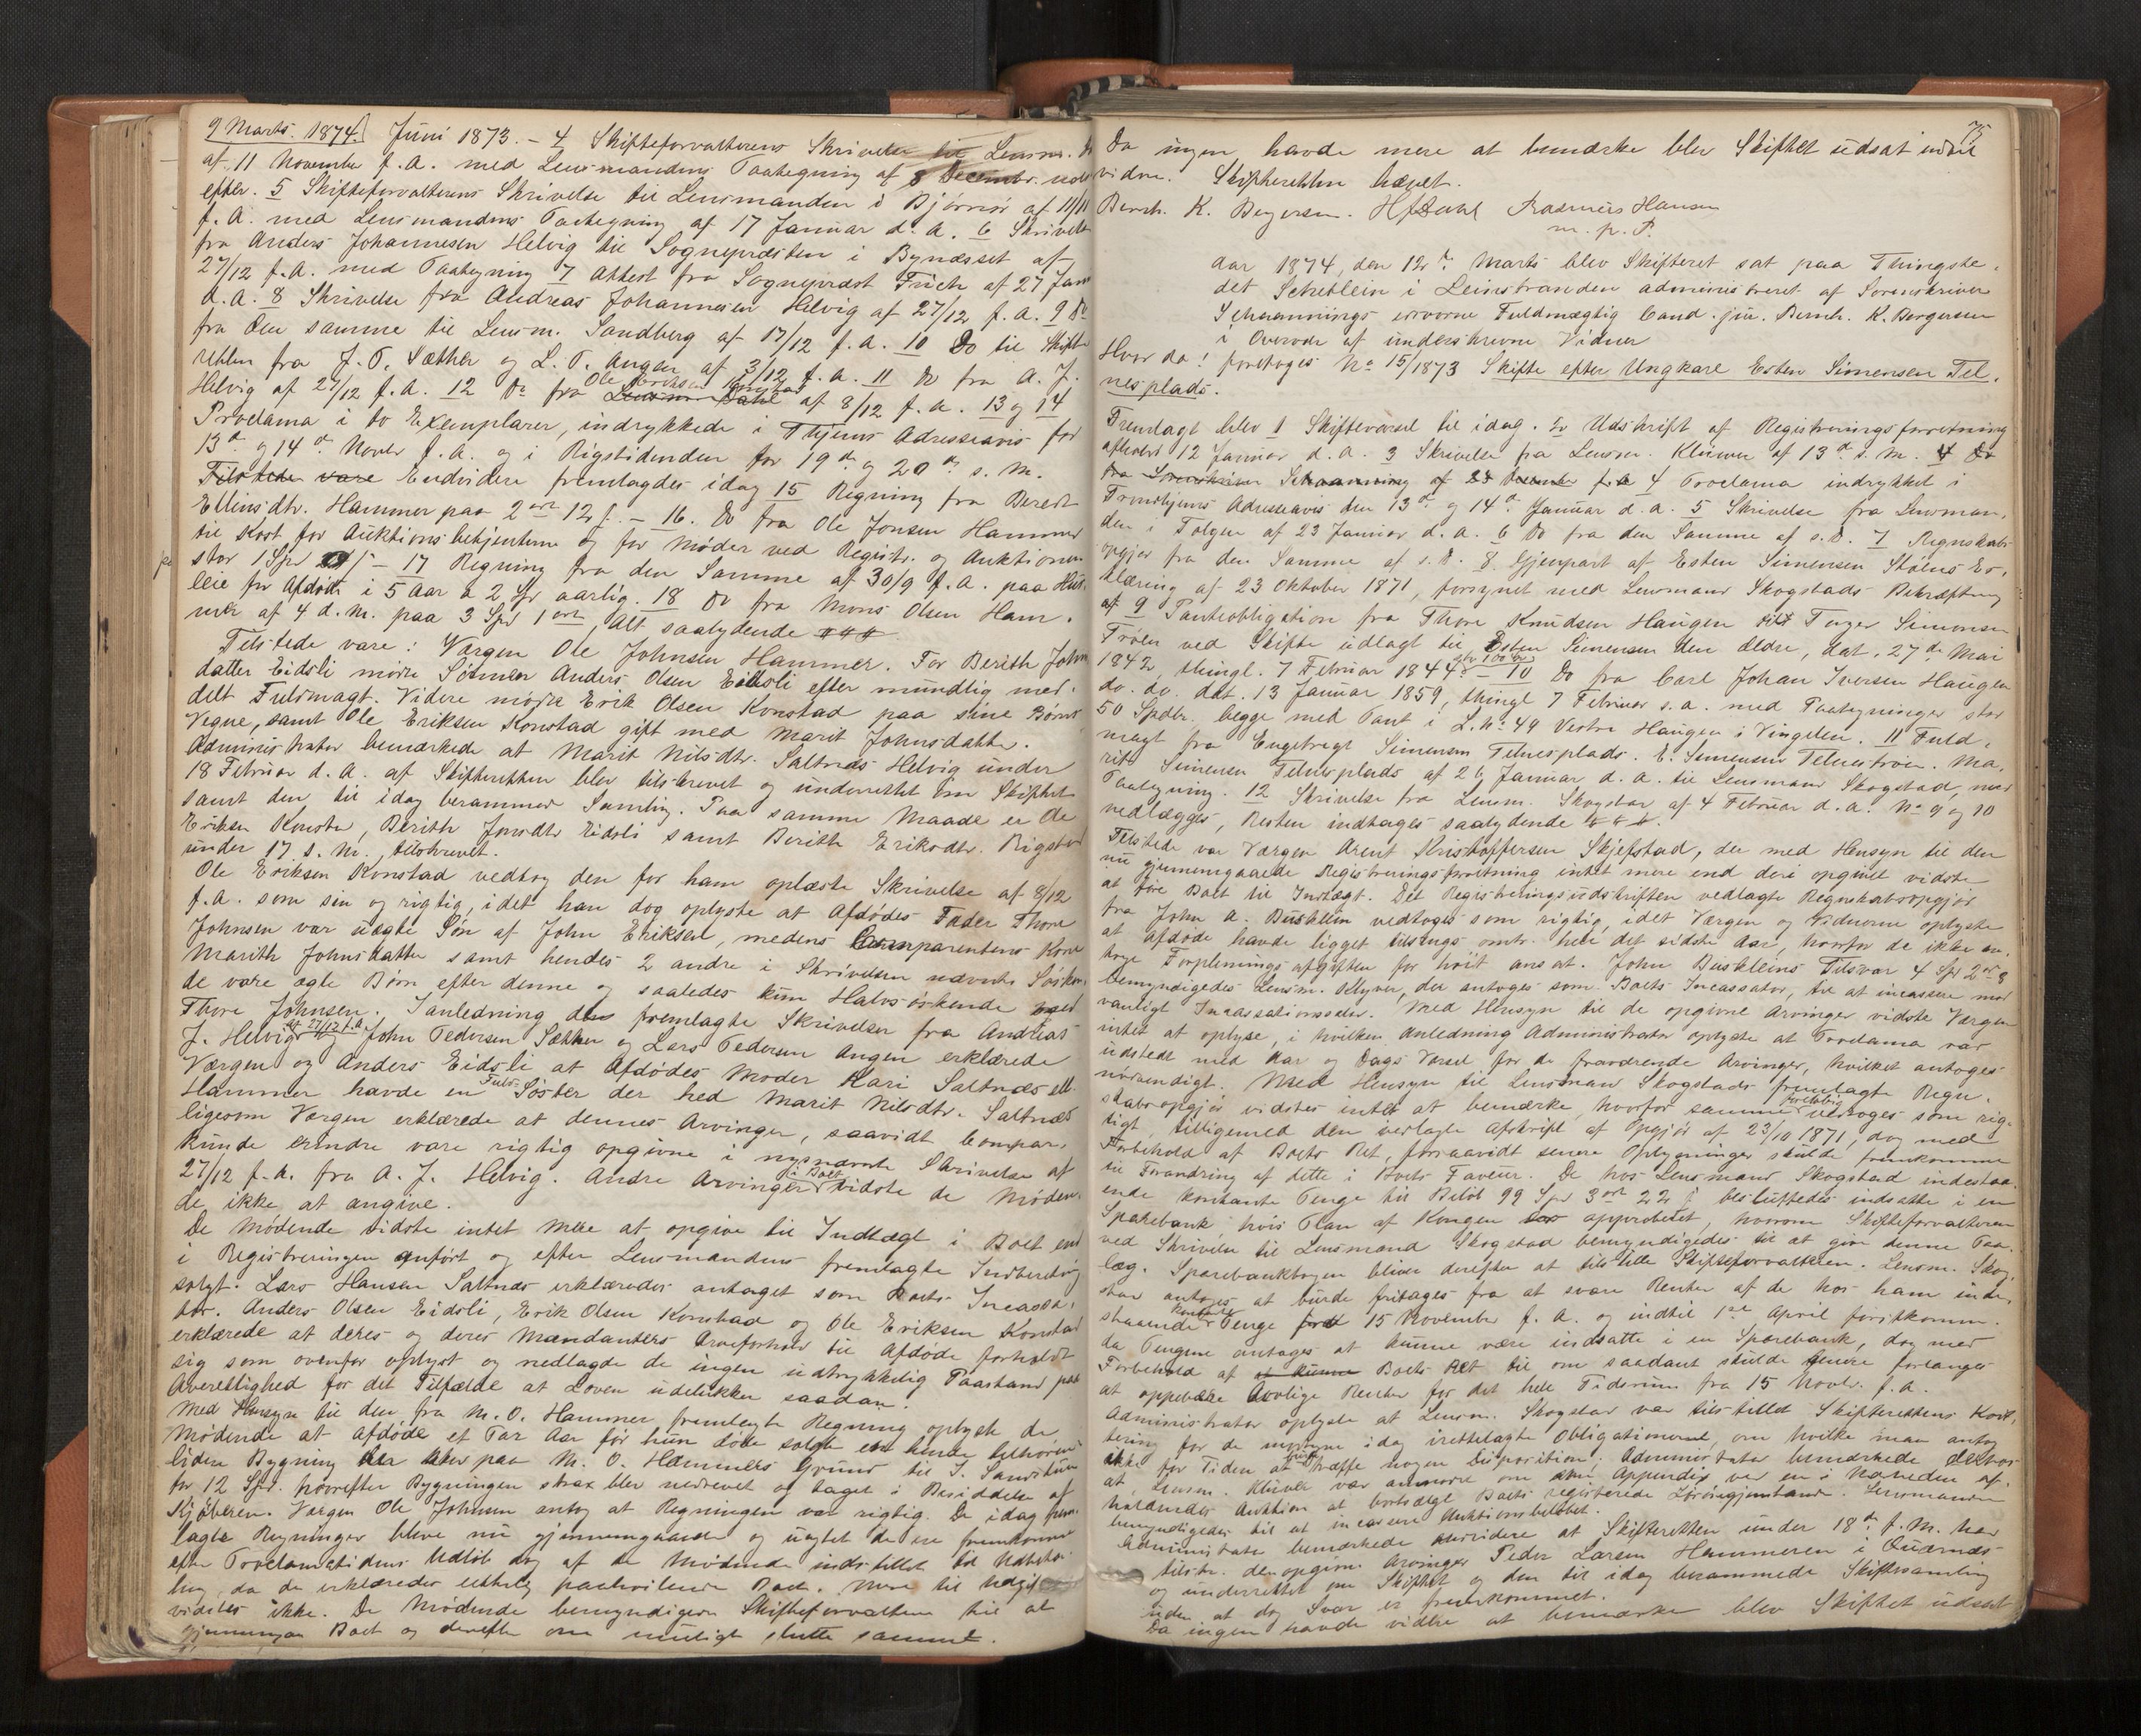 9 Marts 1874. Juni 1873. – 4 Skifteforvalterens Skrivelse til Lensm.
af 11 November f. A. med Lensmandens Paategning af 8 Decembr.
efter. 5 Skifteforvalterens Skrivelse til Lensmanden i Bjørnør af 11/11
f. A. med Lensmandens Paategning af 17 Januar d. A. 6 Skrivelse
fra Anders Johannesen Helvig til Sognepræsten i Bynæsset af
27/12 f. A. med Paategning 7 Attest fra Sognepræst Frich af 27 Janr
d. A. 8 Skrivelse fra Andreas Johannesen Helvig af 27/12 f. A. 9 Do
fra den samme til Lensm. Sandberg af 17/12 f. A. 10 Do til Skifte
retten fra J. P. Sæther og L. P. Angen af 3/12 f. A. 11 Do fra A. J.
Helvig af 27/12 f. A. 12 Do fra Ole Eriksen Konstad af 8/12 f. A. 13 og 14
Proclama i to Exemplarer, indrykkede i Thjems Adresseavis for
13de og 14de Novbr f. A. og i Rigstidenden for 19de og 20de s. M.
Tilstede vare Endvidere fremlagdes idag 15 Regning fra Berit
Ellinsdtr. Hammer paa 2 ort 12 s. – 16. Do fra Ole Jonsen Hammer
til Kost for Auktionsbetjentene og for Møder ved Registr. og Auktionen
stor 1 Spd – 17 Regning fra den Samme af 30/9 f. A. paa Hus
leie for Afdøde i 5 Aar a 2 Spd aarlig. 18 Do fra Mons Olsen Ham-
mer af 4 d. M. paa 3 Spd 1 ort, alt saalydende ###
Tilstede vare: Værgen Ole Johnsen Hammer. For Berith Johns
datter Eidsli mødte Sønnen Anders Olsen Eidsli efter mundlig med-
delt Fuldmagt. Videre mødte Erik Olsen Konstad paa sine Børns
Vegne, samt Ole Eriksen Konstad gift med Marit Johnsdatter.
Administrator bemærkede at Marit Nilsdtr. Saltnæs Helvig under
18 Februar d. A. af Skifteretten blev tilskrevet og underrettet om Skiftet
samt den til idag berammede Samling. Paa samme Maade er Ole
Eriksen Konstad, Berith Jonsdtr Eidsli samt Berith Eriksdtr. Rigstad
under 17 s. M. tilskrevet.
Ole Eriksen Konstad vedtog den for ham oplæste Skrivelse af 8/12
f. A. som sin og rigtig, idet han dog oplyste at Afdødes Fader Thore
Johnsen var uægte Søn af John Eriksen, medens Comparentens Kone
Marith Johnsdatter samt hendes 2 andre i Skrivelsen nævnte Søsken
de vare ægte Børn efter denne og saaledes kun Halvsøskende med
Thore Johnsen. I anledning den fremlagte Skrivelser fra Andreas
J. Helvig af 27/12 f. A. John Pedersen Sæther og Lars Pedersen Angen erklærede
Værgen og Anders Eidsli at Afdødes Moder Kari Saltnæs ell.
Hammer havde en Fuld Søster der hed Marit Nilsdtr. Saltnæs
ligesom Værgen erklærede at dennes Arvinger, saavidt Compar.
kunde erindre vare rigtig opgivne i nysnævnte Skrivelse af
27/12 f. A. fra A. J. Helvig. Andre Arvinger i Boet vidste de Møden-
de ikke at angive.
De Mødende vidste intet mere at opgive til Indtægt i Boet end
i Registreringen anført og efter Lensmandens fremlagte Indberetning
solgt. Lars Hansen Saltnæs erklæredes antaget som Boets Incassa-
tor. Anders Olsen Eidsli, Erik Olsen Konstad og Ole Eriksen Konstad
erklærede at deres og deres Mandanters Arveforhold til Afdøde forholdt
sig som ovenfor oplyst og nedlagde de ingen udtrykkelig Paastand paa
Averettighed for det Tilfælde at Loven udelukker saadan.
Med Hensyn til den fra M. O. Hammer fremlagte Regning oplyste de
Mødende at Afdøde et Par Aar før hun døde solgte en hende tilhørende
liden Bygning der paa M. O. Hammers Grund til J. Sandstuen
for 12 Spd. hvorefter Bygningen strax blev nedrevet og taget i Besiddelse af
Kjøberen. Værgen Ole Johnsen antog at Regningen var rigtig. De idag frem
lagte Regninger bleve nu gjennemgaaede og uagtet de ere fremkomne
efter Proclamatidens Udløb dog af de Mødende indstillet til Udbeta-
ling, da de erklæredes paahvilende Boet. Mere til Udgift
vidstes ikke. De Mødende bemyndigede Skifteforvalteren til at
gjennemgaa Boet og derefter om muligt slutte samme.
75
Da ingen havde mere at bemærke blev Skiftet udsat indtil
videre. Skifteretten hævet.
Bernh. K. Bergersen. H. Dahl Rasmus Hansen
m. p. P.
Aar 1874, den 12te Marts blev Skifteret sat paa Thingste-
det Schetlein i Leinstranden administreret af Sorenskriver
Schmannings edsvorne Fuldmægtig Cand. jur. Bernh. K. Bergersen
i Overvær af underskrevne Vidner
Hvor da! foretoges No 15/1873 Skifte efter Ungkarl Esten Simensen Tel-
nesplads.
Fremlagt blev 1 Skiftevarsel til idag. 2 Udskrift af Registreringsforretning
afleveret 12 Januar d. A. 3 Skrivelse fra Lensm. Klüwer af 13de s. M. 4 Do
fra Sorenskriver Schmanning af 23 Decembr f. A 4 Proclama indrykket i
Trondhjems Adresseavis den 13de og 14de Januar d. A. 5 Skrivelse fra Lensman-
den i Tolgen af 23 Januar d. A. 6 Do fra den Samme af s. D. 7 Regnskabs
opgjør fra den Samme af s. D. 8. Gjenpart af Esten Simensen Støens Er-
klæring af 23 Oktober 1871, forsynet med Lensmand Skogstads Bekræftning
af 9 Panteobligation fra Thore Knudsen Haugen til Torger Simonsen
Trøen ved Skifte udlagt til Esten Simensen den Ældre, dat. 27de Mai
1842, thingl. 7 Februar 1844 – 10 Do fra Carl Johan Iversen Haugen
do. do. dat. 13 Januar 1859, thingl 7 Februar s. A. med Paategninger stor
50 Spdlr. begge med Pant i L. No 49 Vestre Haugen i Vingelen. 11 Fuld-
magt fra Engebregt Simensen Telnesplads. E. Simensen Telnestrøen. Ma-
rit Simensen Telnesplads af 26 Januar d. A. til Lensmand Skogstad, med
Paategning. 12 Skrivelse fra Lensm. Skogstad af 4 Februar d. A. No 9 og 10
vedlægges, Resten indtages saalydende ###.
Tilstede var Værgen Arent Kristoffersen Skjefstad, der med Hensyn til den
nu gjennemgaaede Registreringsforretning intet mere end deri opgivet vidste
at føre Boet til Indtægt. Det Registreringsudskriften vedlagte Regnskabsopgjør
fra John A. Busklein vedtoges som rigtig, idet Værgen og Vidnerne oplyste
at Afdøde havde ligget tilsengs omtr. hele det sidste Aar, hvorfor de ikke an-
tage Forplejningsafgiften for høit ansat. John Buskleins Tilsvar 4 Spd 2 ort 8
bemyndigedes Lensm. Klüver, der antoges som Boets Incassator, til at incassere mod
vanligt Incassationssalær. Med Hensyn til de opgivne Arvinger vidste Værgen
intet at oplyse, i hvilken Anledning Administrator oplyste at Proclama var
udstedt med Aar og Dags Varsel for de fraværende Arvinger, hvilket antoges
nødvendigt. Med Hensyn til Lensmand Skogstads fremlagte Regn-
skabsopgjør vidstes intet at bemærke, hvorfor samme foreløbig vedtoges som rig-
tigt, tilligemed den vedlagte Afskrift af Opgjør af 23/10 1871, dog med
Forbehold af Boets Ret, forsaavidt senere Oplysninger skulde fremkomme
til Forandring af dette i Boets Faveur. De hos Lensmand Skogstad indestaa-
ende kontante Penge til Beløb 99 Spd 3 ort 22 s besluttedes indsatte i en
Sparebank, hvis Plan af Kongen er approberet, hvorom Skifteforvalteren
ved Skrivelse til Lensmand Skogstad bemyndigedes til at give denne Paa-
læg. Sparebankbogen bliver derefter at tilstille Skifteforvalteren. Lensm. Skog-
stad antoges at burde fritages fra at svare Renter af de hos ham inde-
staaende kontante Penge fra 15 November f. A. og indtil 1ste April førstkomm.
da Pengene antages at kunne være indsatte i en Sparebank, dog med
Forbehold af at kunne Boets Ret til om saadant skulde senere forlanges
at oppebære lovlige Renter for det hele Tidsrum fra 15 Novbr. f. A.
Administrator oplyste at Lensm. Skogstad var tilstillet Skifterettens Kvit-
tering for de idag irettelagte Obligationer, om hvilke man antog
ikke for Tiden at burde træffe nogen Disposition; Administrator bemærkede
at Lensm. Klüver var anmodet om Appendix ved en i Nærheden af-
holdendes Auktion at bortsælge Boets registrerede Løsøregjenstande. Lensmanden
bemyndigedes til at incassere Auktionsbeløbet.
Administrator bemærkede endvidere at Skifteretten under 18de f. M. har
tilskr. den opgivne Arvinger Peder Larsen Hammeren i Qværnæs
og underrettet om Skiftet og den til idag berammede Skiftesamling
uden at dog Svar er fremkommet.
Da ingen havde videre at bemærke blev Skiftet udsat